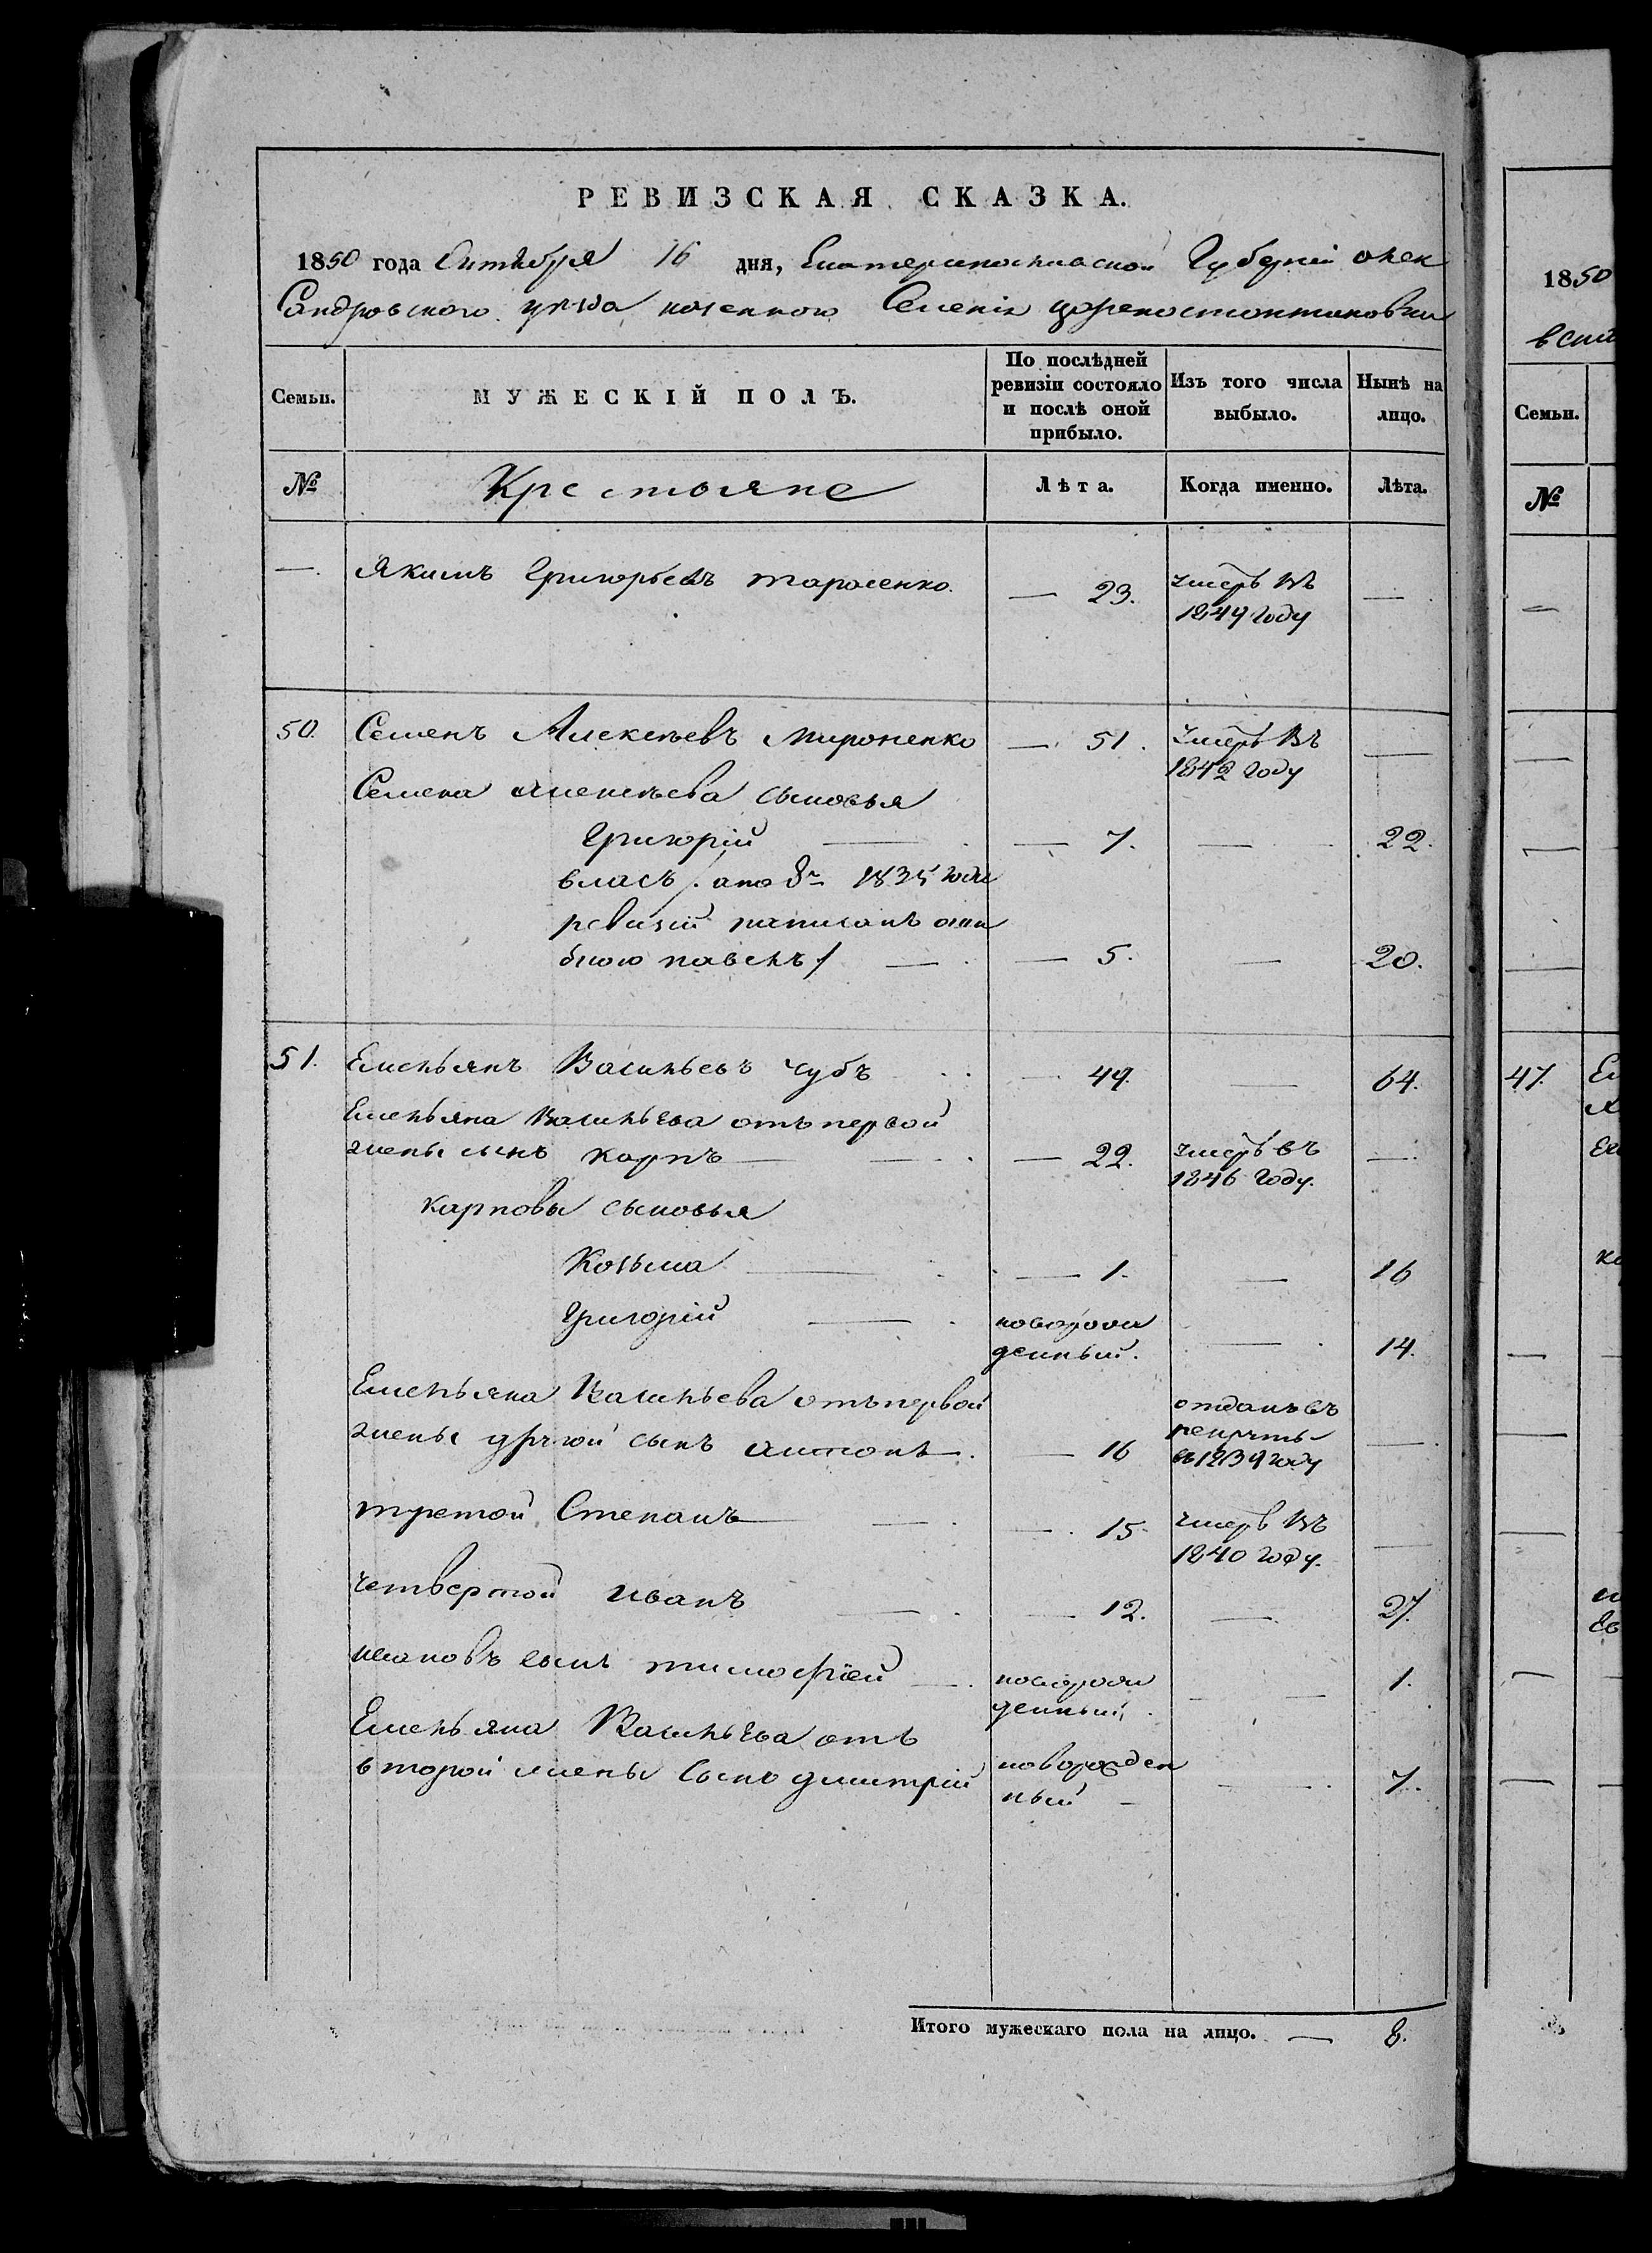 РЕВИЗСКАЯ СКАЗКА.
1850 года Октября 16 дня, Екатеринославской Губерніи Алек
сандровского уезда казенного Селенія цареконстантиновки
Семьи.
МУЖЕСКІЙ ПОЛЪ.
По послѣдней ревизіи состояло и послѣ оной прибыло.
Изъ того числа выбыло.
Нынѣ на лицо.
№
Крестьяне
Лѣта.
Когда именно.
Лѣта.
—. Якимъ Григорьевъ тарасенко. — 23. умеръ въ —
1849 году
50. Семенъ Алексѣевъ мироненко — 51. умеръ въ —
1842 году
Семена алексѣева сыновья
Григорій — — 7. — 22.
власъ /. а по 8й 1835 года
ревизіи написанъ оши
бкою павелъ / — — 5. — 20.
51. Емельянъ Васильевъ чубъ — 49. — 64.
Емельяна Васильева отъ первой
жены сынъ карпъ — — 22. умеръ въ —
1846 году.
карповы сыновья
Козьма — — 1. — 16
Григорій — новорож
денный. — 14.
Емельяна Васильева отъ первой
жены другой сынъ антонъ — 16 отданъ въ
рекруты
въ 1839 году —
третой Степанъ — — 15. умеръ въ
1840 году. —
четвертой иванъ — — 12. — 27.
ивановъ сынъ тимофѣй — новорож
денный. — 1.
Емельяна Васильева отъ
второй жены сынъ дмитрій новорожден
ный — — 7.
Итого мужескаго пола на лицо. — 8.
1850
Семьи.
№
47.